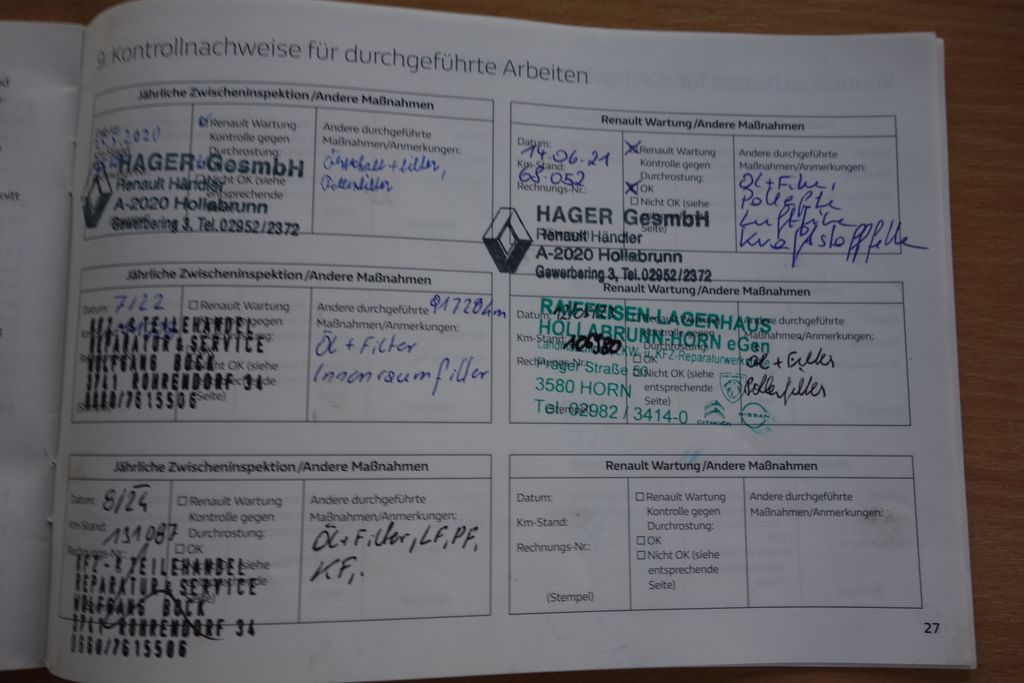 9. Kontrollnachweise für durchgeführte Arbeiten
Jährliche Zwischeninspektion/Andere Maßnahmen
2020
Renault Wartung
Kontrolle gegen
Durchrostung:
Nicht OK (siehe
entsprechende
Andere durchgeführte
Maßnahmen/Anmerkungen:
+ Filter,
Pollenfilter
HAGER GesmbH
Renault Händler
A-2020 Hollabrunn
Gewerbering 3, Tel. 02952/2372
Renault Wartung/Andere Maßnahmen
Datum:
14.06.21
Km-Stand:
68.052
Rechnungs-Nr.:
Renault Wartung
Kontrolle gegen
Durchrostung:
OK
Nicht OK (siehe
Seite)
Andere durchgeführte
Maßnahmen/Anmerkungen:
Öl + Filter,
HAGER GesmbH
Renault Händler
A-2020 Hollabrunn
Gewerbering 3, Tel. 02952/2372
Jährliche Zwischeninspektion/Andere Maßnahmen
Datum: 7/22
Renault Wartung
gegen
OK (siehe
Seite)
Andere durchgeführte 91728km
Maßnahmen/Anmerkungen:
Öl + Filter
Innenraumfilter
KFZ-& TEILEHANDEL
REPARATUR & SERVICE
WOLFGANG BOCK
3741 ROHRENDORF 34
0660/7615506
Renault Wartung/Andere Maßnahmen
Datum:
Km-Stand:
106580
Andere durchgeführte
Maßnahmen/Anmerkungen:
Öl + Filter
Pollenfilter
OK
Nicht OK (siehe
entsprechende
Seite)
RAIFFEISEN-LAGERHAUS
HOLLABRUNN-HORN eGen
u. KFZ-Reparaturwerkstätte
Prager Straße 50
3580 HORN
Tel. 02982 / 3414-0
CITROËN
NISSAN
Jährliche Zwischeninspektion/Andere Maßnahmen
Datum: 8/24
Km-Stand:
131087
Rechnungs-Nr.:
Renault Wartung
Kontrolle gegen
Durchrostung:
OK
siehe
Andere durchgeführte
Maßnahmen/Anmerkungen:
Öl + Filter, LF, PF,
KF,.
KFZ-& TEILEHANDEL
REPARATUR & SERVICE
WOLFGANG BOCK
3741 ROHRENDORF 34
0660/7615506
Renault Wartung/Andere Maßnahmen
Datum:
Km-Stand:
Rechnungs-Nr.:
(Stempel)
Renault Wartung
Kontrolle gegen
Durchrostung:
OK
Nicht OK (siehe
entsprechende
Seite)
Andere durchgeführte
Maßnahmen/Anmerkungen:
27